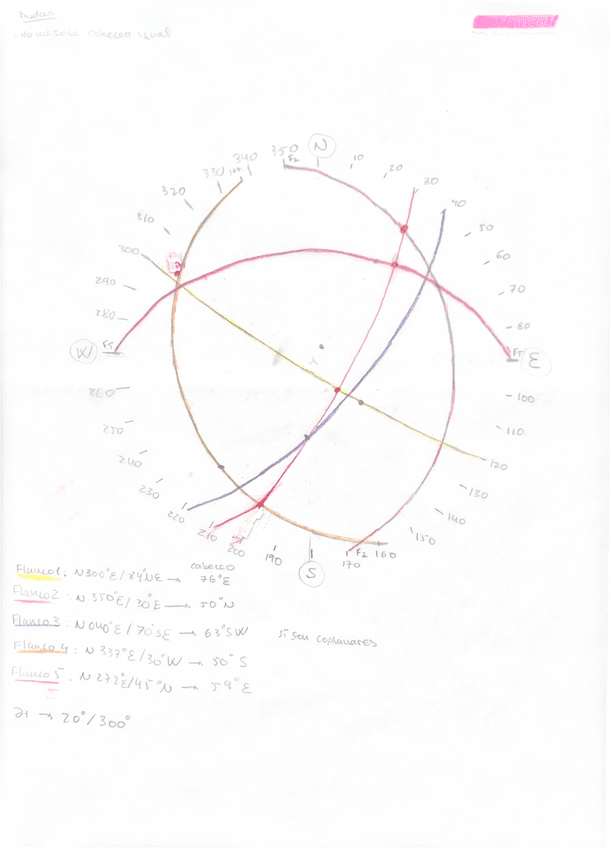 Dudas
- No me sale cabeceo igual
340 350 F2 N 10 20 30
330
320 40
310 50
300 60
290 70
280 80
W F5 F5 E
260 100
250 110
240 120
230 130
220 140
210 150
200 190 S 170 F2 160
cabeceo
Flanco 1: N300°E/84°NE → 76°E
Flanco 2: N 350°E/30°E → 50°N
Flanco 3: N040°E/70°SE → 63°SW Sí son coplanares
Flanco 4: N 337°E/30°W → 50° S
Flanco 5: N272°E/45°N → 59°E
→ 20°/300°